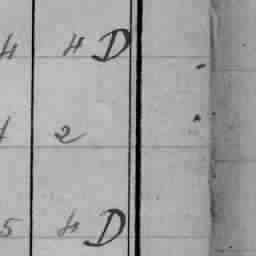 4 4 D
1 2
5 4 D